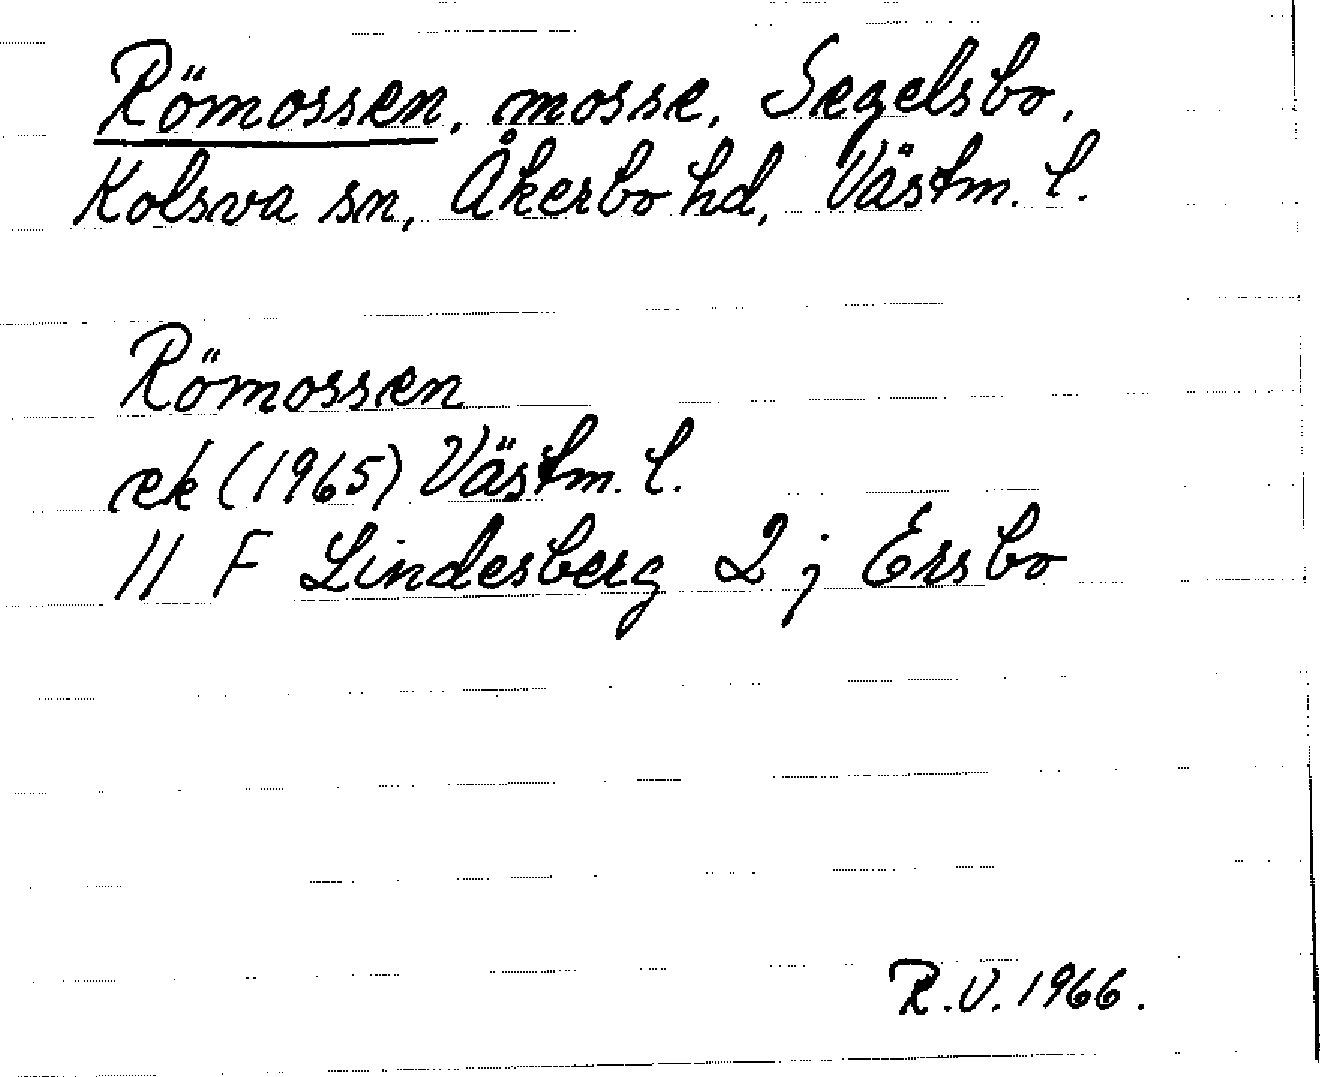 Römossen, mosse, Segelsbo,
Kolsva sn, Åkerbo hd, Västm. l.
Römossen
ek (1965) Västm. l.
11 F Lindesberg 2 j Ersbo
R.V. 1966.